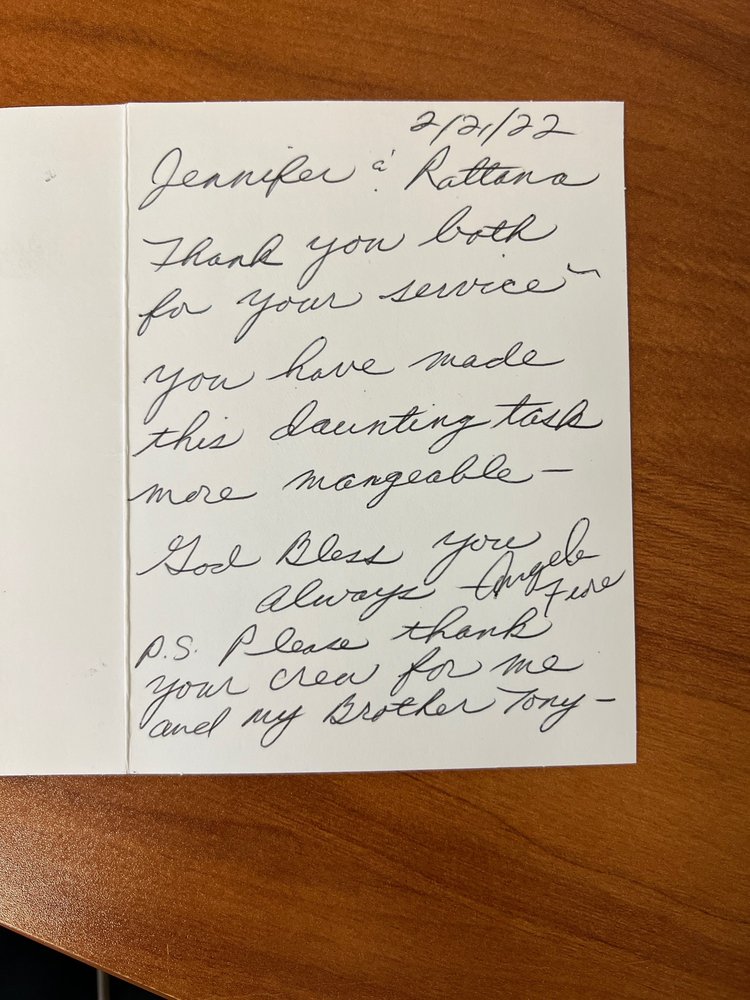 2/21/22
Jennifer & Rattana
Thank you both
for your service~
you have made
this daunting task
more mangeable -
God Bless you
always - Angela
Fiore
P.S. Please thank
your crew for me
and my Brother Tony -